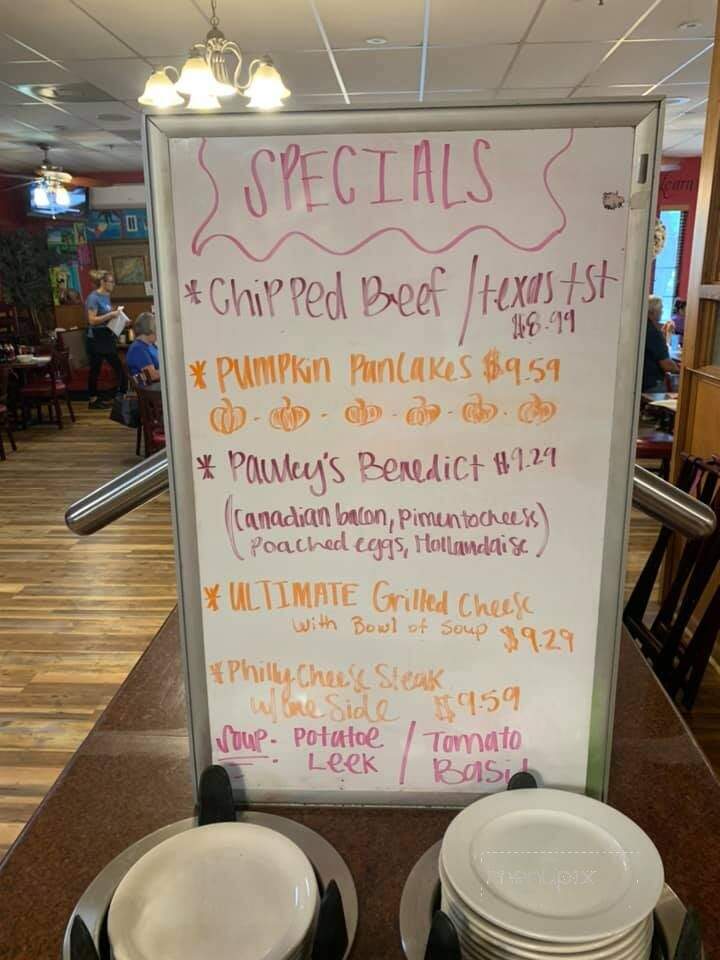 SPECIALS
* Chipped Beef / texas tst
$8.99
* PUMPKIN PanCakes $9.59
* Pawley's Benedict $9.29
(Canadian bacon, pimentocheese)
Poached eggs, Hollandaise)
* ULTIMATE Grilled Cheese
with Bowl of Soup $9.29
* Philly Cheese Steak
w/ one Side $9.59
Soup. Potatoe / Tomato
Leek Basil
menupix